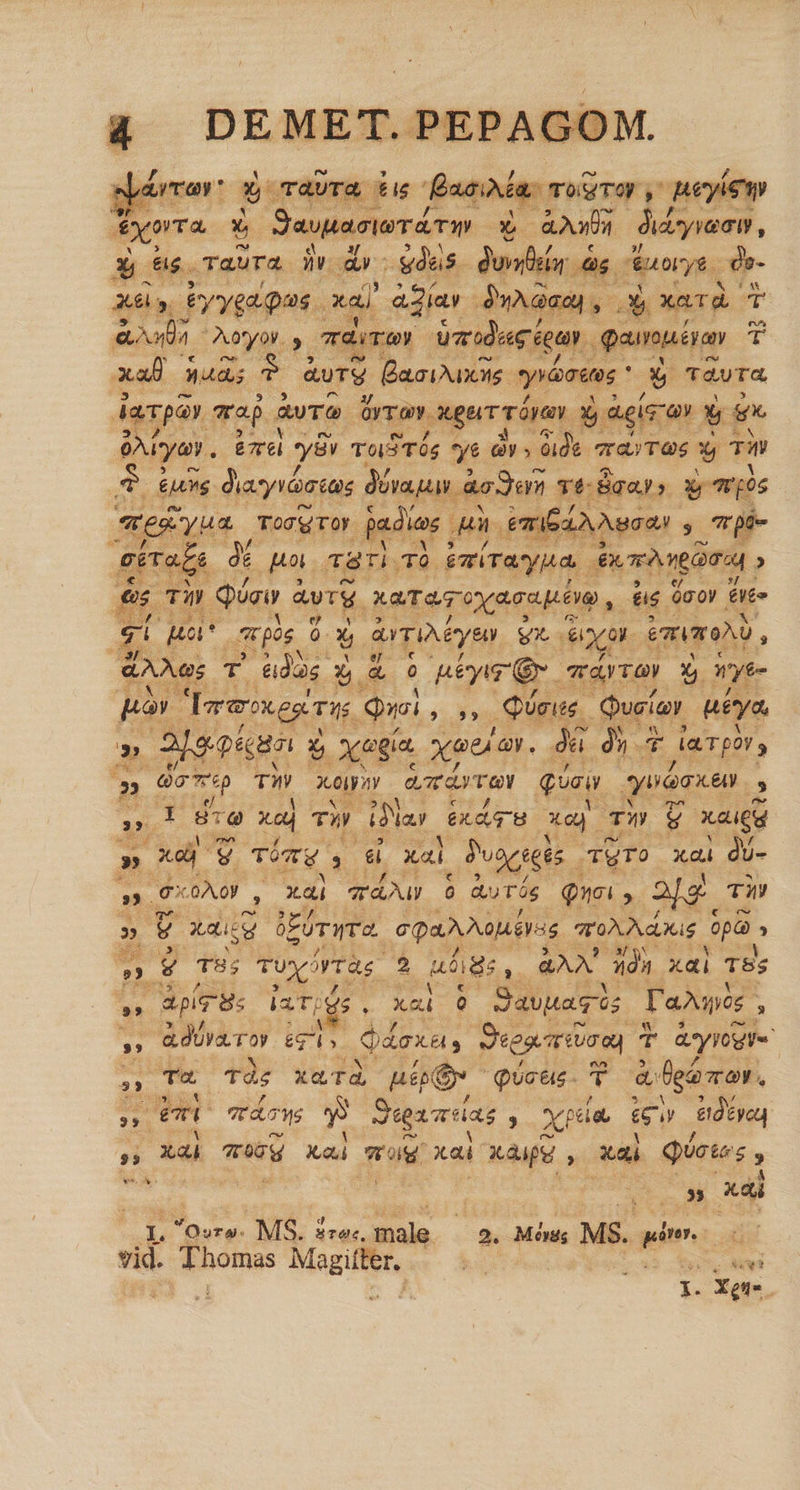 4 DEMET. PEPAGOM.
ψάντων· ϗ ταῦτα εἰς βασιλέα τοιȣ̃τον, μεγίϛην
ἔχοντα ϗ θαυμασιωτάτην ϗ ἀληθῆ διάγνωσιν,
ϗ εἰς ταῦτα ἦν ἂν ȣ̓δεὶς δυνηθείη ὡς ἔμοιγε δο-
κεῖ, ἐγγράφως κατ' ἀξίαν δηλῶσαι, ϗ κατὰ τ
ἀληθῆ λόγον, πάντων ὑποδεεϛέρων φαινομένων τ
καθ' ἡμᾶς τ αὐτȣ̃ βασιλικῆς γνώσεως· ϗ ταῦτα
ἰατρῶν παρ' αὐτῷ ὄντων κρειττόνων ϗ ἀρίϛων ϗ ȣ̓κ
ὀλίγων. ἐπεὶ γȣ̃ν τοιȣ̃τός γε ὢν, οἶδε πάντως ϗ τὴν
τ ἐμῆς διαγνώσεως δύναμιν ἀσθενῆ τε ȣ̓͂σαν, ϗ πρὸς
πρᾶγμα τοσȣ̃τον ῥαδίως μὴ ἐπιβάλλȣσαν, προ-
σέταξε δέ μοι τȣτὶ τὸ ἐπίταγμα ἐκπληρῶσαι,
ὡς τὴν φύσιν αὐτȣ̃ καταϛοχασαμένῳ, εἰς ὅσον ἔνε-
ϛί μοι· πρὸς ὃ ϗ ἀντιλέγειν ȣ̓κ εἶχον ἐπιπολὺ,
ἄλλως τ' εἰδὼς ϗ ἃ ὁ μέγιϛος πάντων ϗ ἡγε-
μὼν Ἱπποκράτης φησὶ, ,, Φύσιες φυσίων μέγα
,, διαφέρȣσι ϗ χωρία χωρίων. δεῖ δὴ τ ἰατρὸν,
,, ὥσπερ τὴν κοινὴν ἁπάντων φύσιν γινώσκειν,
,, 1 ȣ̔́τω καὶ τὴν ἰδίαν ἑκάϛȣ καὶ τὴν τȣ̃ καιρȣ̃
,, καὶ τȣ̃ τόπȣ, εἰ καὶ δυσχερὲς τȣ̃το καὶ δύ-
,, σκολον, καὶ πάλιν ὁ αὐτός φησι, διὰ τὴν
,, τȣ̃ καιρȣ̃ ὀξύτητα σφαλλομένȣς πολλάκις ὁρῶ,
,, ȣ̓ τȣ̀ς τυχόντας 2 μόνȣς, ἀλλ' ἤδη καὶ τȣ̀ς
,, ἀρίϛȣς ἰατρȣ̀ς. καὶ ὁ θαυμαϛὸς Γαληνὸς,
,, ἀδύνατον ἐϛὶ, φάσκει, θεραπεῦσαι τ ἀγνοȣ̃ν-
,, τα τὰς κατὰ μέρος φύσεις τ ἀνθρώπων.
,, ἐπὶ πάσης γὰρ θεραπείας, χρεία ἐϛὶν εἰδέναι
,, καὶ ποσȣ̃ καὶ ποιȣ̃ καὶ καιρȣ̃, καὶ φύσεως,
,, καὶ
1. Οὕτω. MS. ȣ̔́τως. male
vid. Thomas Magister.
2. Μόνȣς MS. μόνον.
1. Χρη-